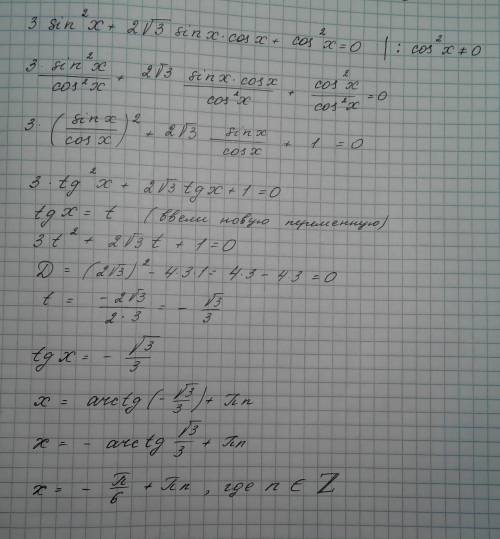 3 sin²x + 2√3 sinx·cosx + cos²x = 0 | : cos²x ≠ 0
3·sin²x/cos²x + 2√3 sinx·cosx/cos²x + cos²x/cos²x = 0
3·(sinx/cosx)² + 2√3 sinx/cosx + 1 = 0
3·tg²x + 2√3 tgx + 1 = 0
tgx = t (ввели новую переменную)
3t² + 2√3 t + 1 = 0
D = (2√3)² - 4·3·1 = 4·3 - 4·3 = 0
t = -2√3/2·3 = - √3/3
tgx = - √3/3
x = arctg(-√3/3) + πn
x = - arctg √3/3 + πn
x = - π/6 + πn, где n ∈ Z